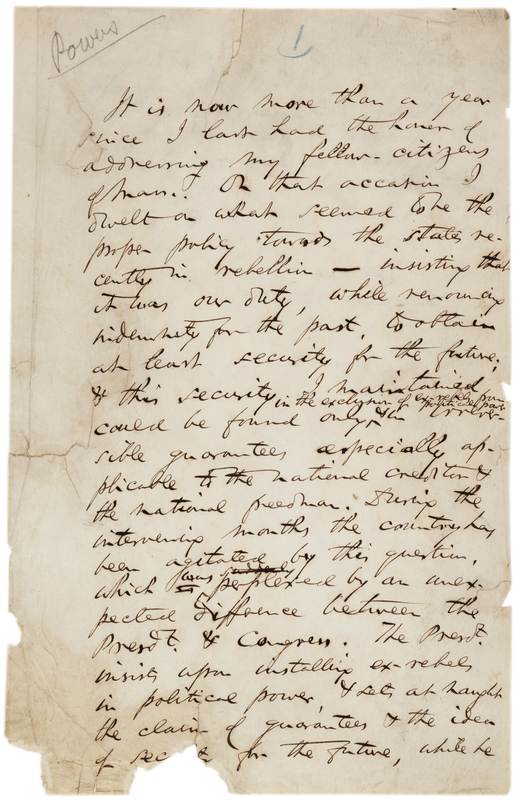 Powers
1
It is now more than a year
since I last had the honor of
addressing my fellow-citizens
of Mass. On that occasion I
dwelt on what seemed to be the
proper policy towards the states re-
cently in rebellion — insisting that
it was our duty, while renouncing
indemnity for the past, to obtain
at least security for the future;
& this security, I maintained,
in the exclusion of ex-rebels from
political power
could be found only & in irrever-
sible guarantees especially ap-
plicable to the national creditor &
the national freedman. During the
intervening months the country has
been agitated by this question,
which was perplexed by an unex-
pected difference between the
Presdt. & Congress. The Presdt.
insists upon installing ex-rebels
in political power, & sets at naught
the claim of guarantees & the idea
of sec for the future, while he